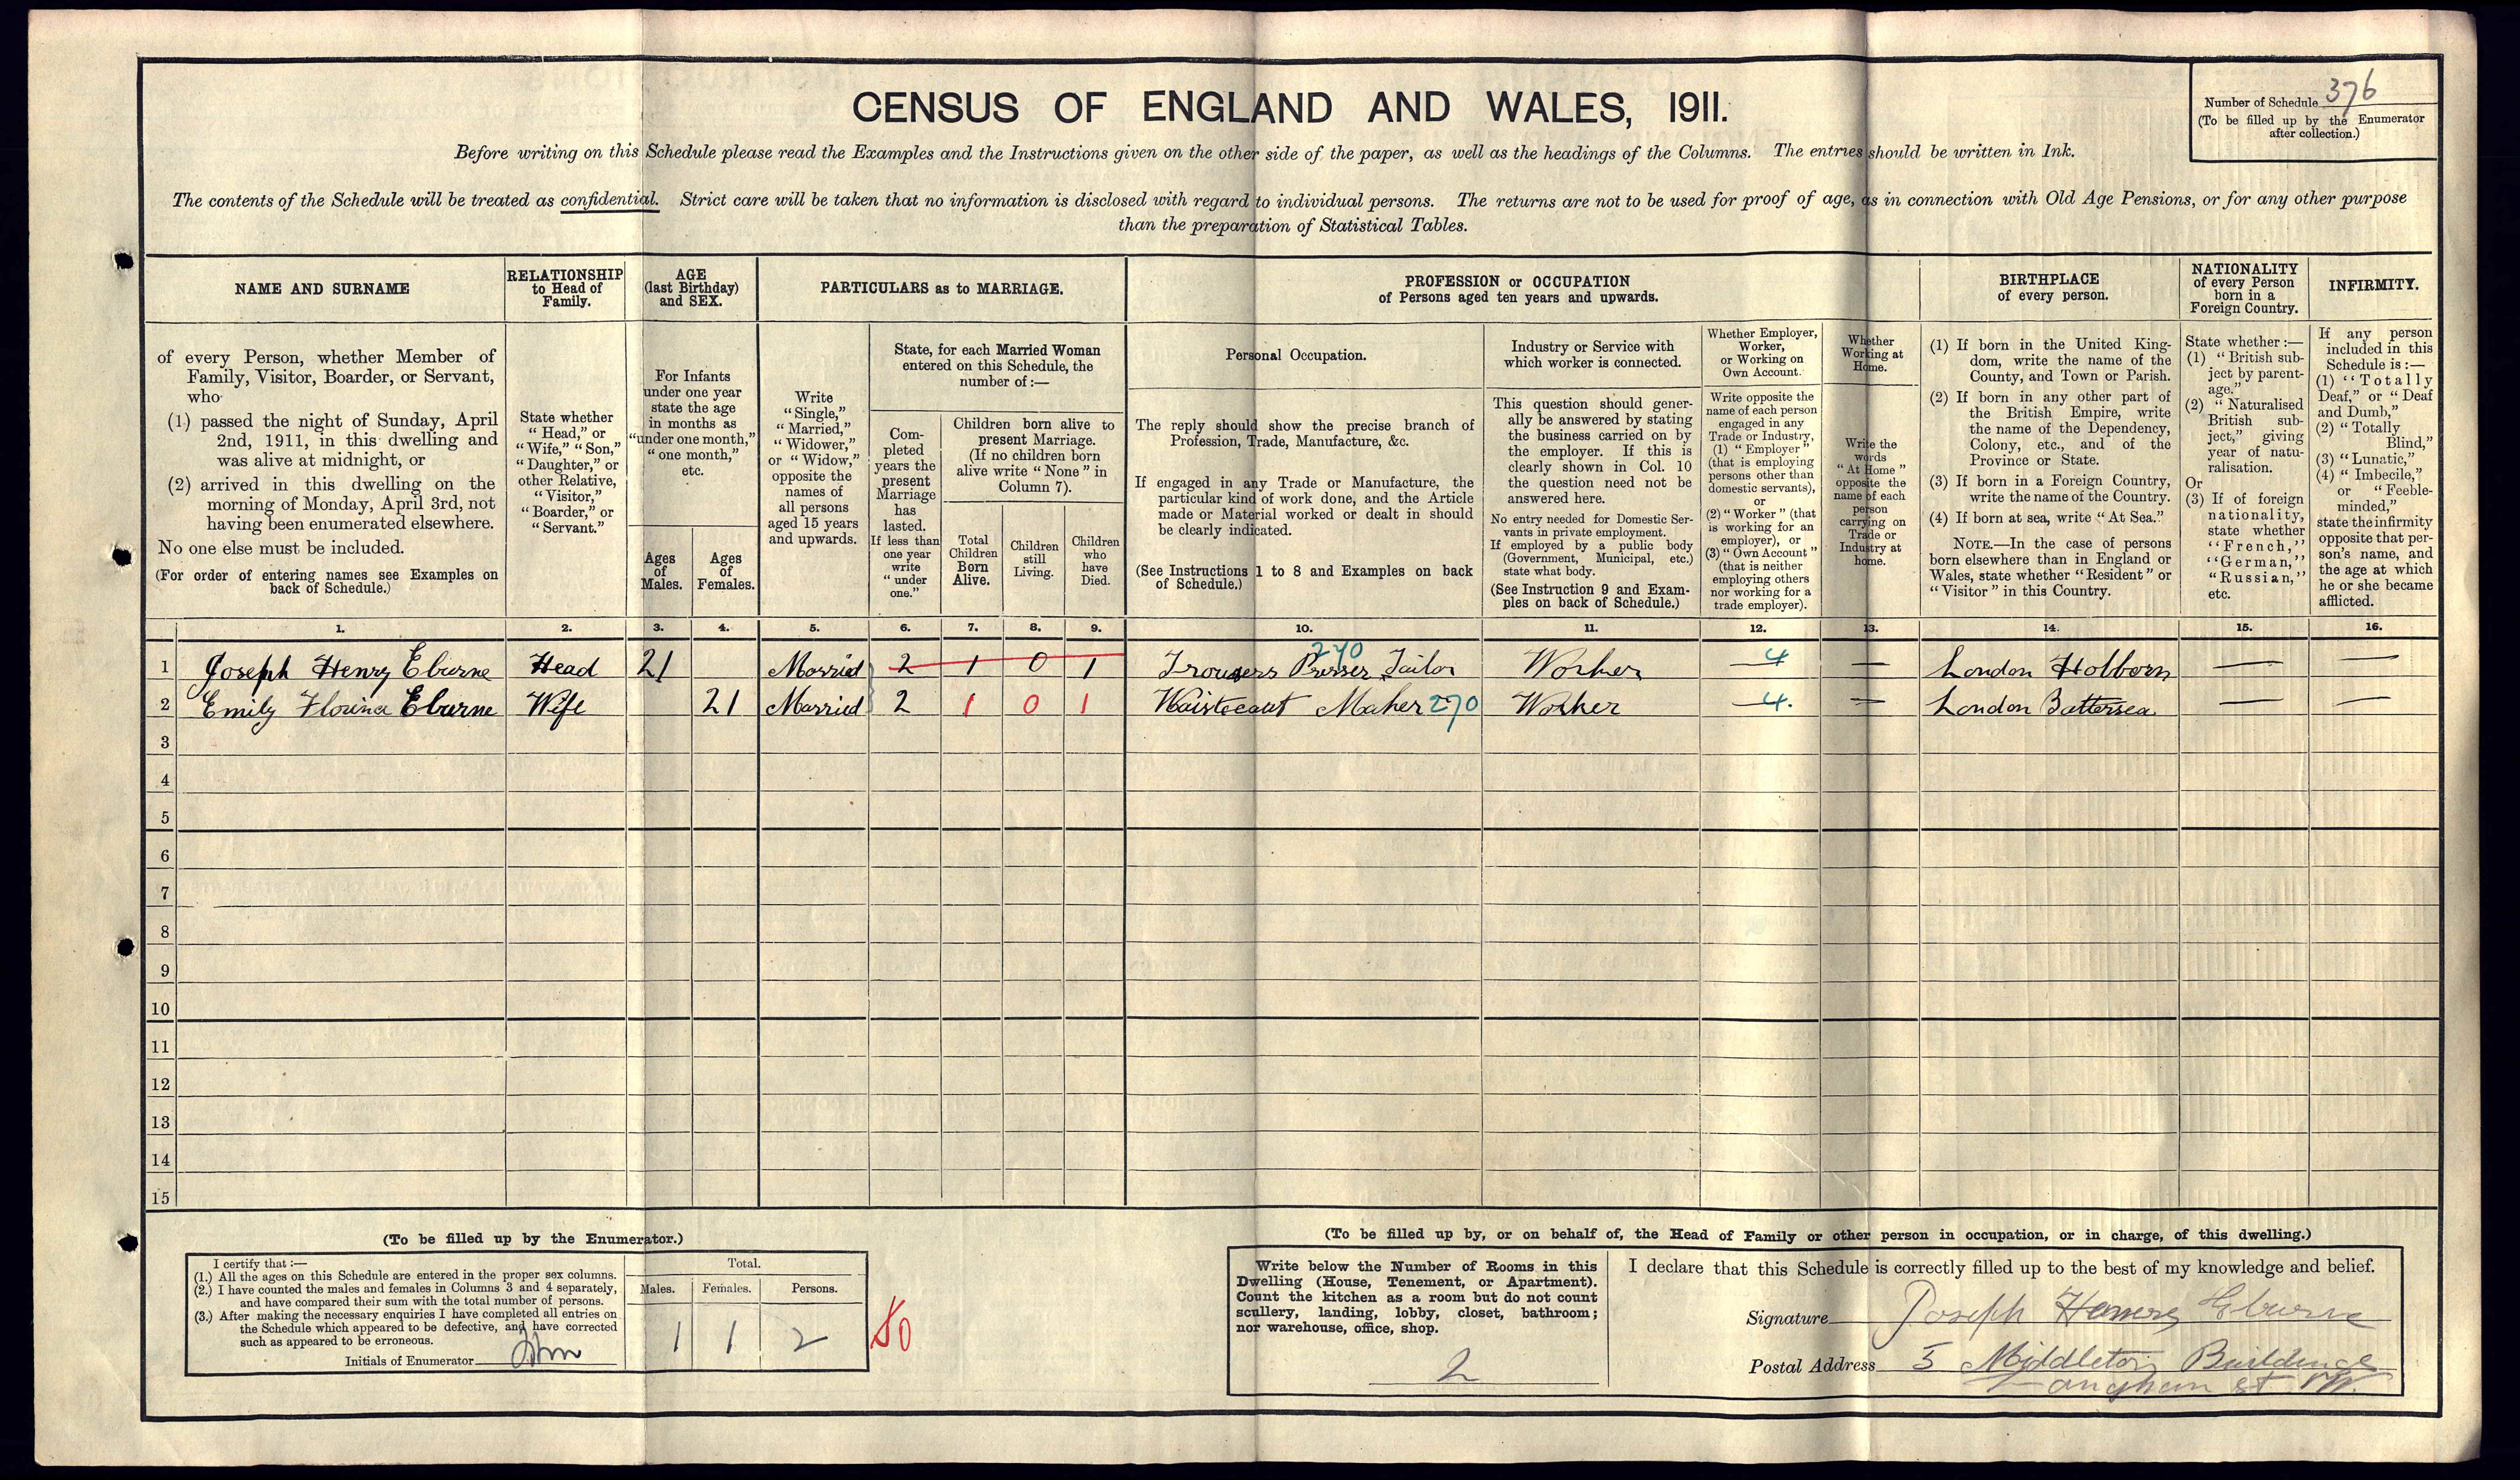 CENSUS OF ENGLAND AND WALES, 1911.
Number of Schedule 376
(To be filled up by the Enumerator
after collection.)
Before writing on this Schedule please read the Examples and the Instructions given on the other side of the paper, as well as the headings of the Columns. The entries should be written in Ink.
The contents of the Schedule will be treated as confidential. Strict care will be taken that no information is disclosed with regard to individual persons. The returns are not to be used for proof of age, as in connection with Old Age Pensions, or for any other purpose
than the preparation of Statistical Tables.
NAME AND SURNAME
of every Person, whether Member of
Family, Visitor, Boarder, or Servant,
who
(1) passed the night of Sunday, April
2nd, 1911, in this dwelling and
was alive at midnight, or
(2) arrived in this dwelling on the
morning of Monday, April 3rd, not
having been enumerated elsewhere.
No one else must be included.
(For order of entering names see Examples on
back of Schedule.)
RELATIONSHIP
to Head of
Family.
State whether
"Head," or
"Wife," "Son,"
"Daughter," or
other Relative,
"Visitor,"
"Boarder," or
"Servant."
AGE
(last Birthday)
and SEX.
For Infants
under one year
state the age
in months as
"under one month,"
"one month,"
etc.
Ages
of
Males.
Ages
of
Females.
PARTICULARS as to MARRIAGE.
Write
"Single,"
"Married,"
"Widower,"
or "Widow,"
opposite the
names of
all persons
aged 15 years
and upwards.
State, for each Married Woman
entered on this Schedule, the
number of:—
Com-
pleted
years the
present
Marriage
has
lasted.
If less than
one year
write
"under
one."
Children born alive to
present Marriage.
(If no children born
alive write "None" in
Column 7).
Total
Children
Born
Alive.
Children
still
Living.
Children
who
have
Died.
PROFESSION or OCCUPATION
of Persons aged ten years and upwards.
Personal Occupation.
The reply should show the precise branch of
Profession, Trade, Manufacture, &c.
If engaged in any Trade or Manufacture, the
particular kind of work done, and the Article
made or Material worked or dealt in should
be clearly indicated.
(See Instructions 1 to 8 and Examples on back
of Schedule.)
Industry or Service with
which worker is connected.
This question should gener-
ally be answered by stating
the business carried on by
the employer. If this is
clearly shown in Col. 10
the question need not be
answered here.
No entry needed for Domestic Ser-
vants in private employment.
If employed by a public body
(Government, Municipal, etc.)
state what body.
(See Instruction 9 and Exam-
ples on back of Schedule.)
Whether Employer,
Worker,
or Working on
Own Account.
Write opposite the
name of each person
engaged in any
Trade or Industry,
(1) "Employer"
(that is employing
persons other than
domestic servants),
or
(2) "Worker" (that
is working for an
employer), or
(3) "Own Account"
(that is neither
employing others
nor working for a
trade employer).
Whether
Working at
Home.
Write the
words
"At Home"
opposite the
name of each
person
carrying on
Trade or
Industry at
home.
BIRTHPLACE
of every person.
(1) If born in the United King-
dom, write the name of the
County, and Town or Parish.
(2) If born in any other part of
the British Empire, write
the name of the Dependency,
Colony, etc., and of the
Province or State.
(3) If born in a Foreign Country,
write the name of the Country.
(4) If born at sea, write "At Sea."
NOTE.—In the case of persons
born elsewhere than in England or
Wales, state whether "Resident" or
"Visitor" in this Country.
NATIONALITY
of every Person
born in a
Foreign Country.
State whether:—
(1) "British sub-
ject by parent-
age."
(2) "Naturalised
British sub-
ject," giving
year of natu-
ralisation.
Or
(3) If of foreign
nationality,
state whether
"French,"
"German,"
"Russian,"
etc.
INFIRMITY.
If any person
included in this
Schedule is:—
(1) "Totally
Deaf," or "Deaf
and Dumb,"
(2) "Totally
Blind,"
(3) "Lunatic,"
(4) "Imbecile,"
or "Feeble-
minded,"
state the infirmity
opposite that per-
son's name, and
the age at which
he or she became
afflicted.
1. 2. 3. 4. 5. 6. 7. 8. 9. 10. 11. 12. 13. 14. 15. 16.
1 Joseph Henry Eburne Head 21 Married 2 1 0 1 Trousers Presser Tailor 270 Worker 4 — London Holborn — —
2 Emily Florince Eburne Wife 21 Married 2 1 0 1 Waistecaut Maker 270 Worker 4. — London Battersea — —
3
4
5
6
7
8
9
10
11
12
13
14
15
(To be filled up by the Enumerator.)
I certify that:—
(1.) All the ages on this Schedule are entered in the proper sex columns.
(2.) I have counted the males and females in Columns 3 and 4 separately,
and have compared their sum with the total number of persons.
(3.) After making the necessary enquiries I have completed all entries on
the Schedule which appeared to be defective, and have corrected
such as appeared to be erroneous.
Initials of Enumerator
Total.
Males. Females. Persons.
1 1 2
(To be filled up by, or on behalf of, the Head of Family or other person in occupation, or in charge, of this dwelling.)
Write below the Number of Rooms in this
Dwelling (House, Tenement, or Apartment).
Count the kitchen as a room but do not count
scullery, landing, lobby, closet, bathroom;
nor warehouse, office, shop.
2
I declare that this Schedule is correctly filled up to the best of my knowledge and belief.
Signature Joseph Henry Eburne
Postal Address 5 Middleton Buildings
Langham St W.